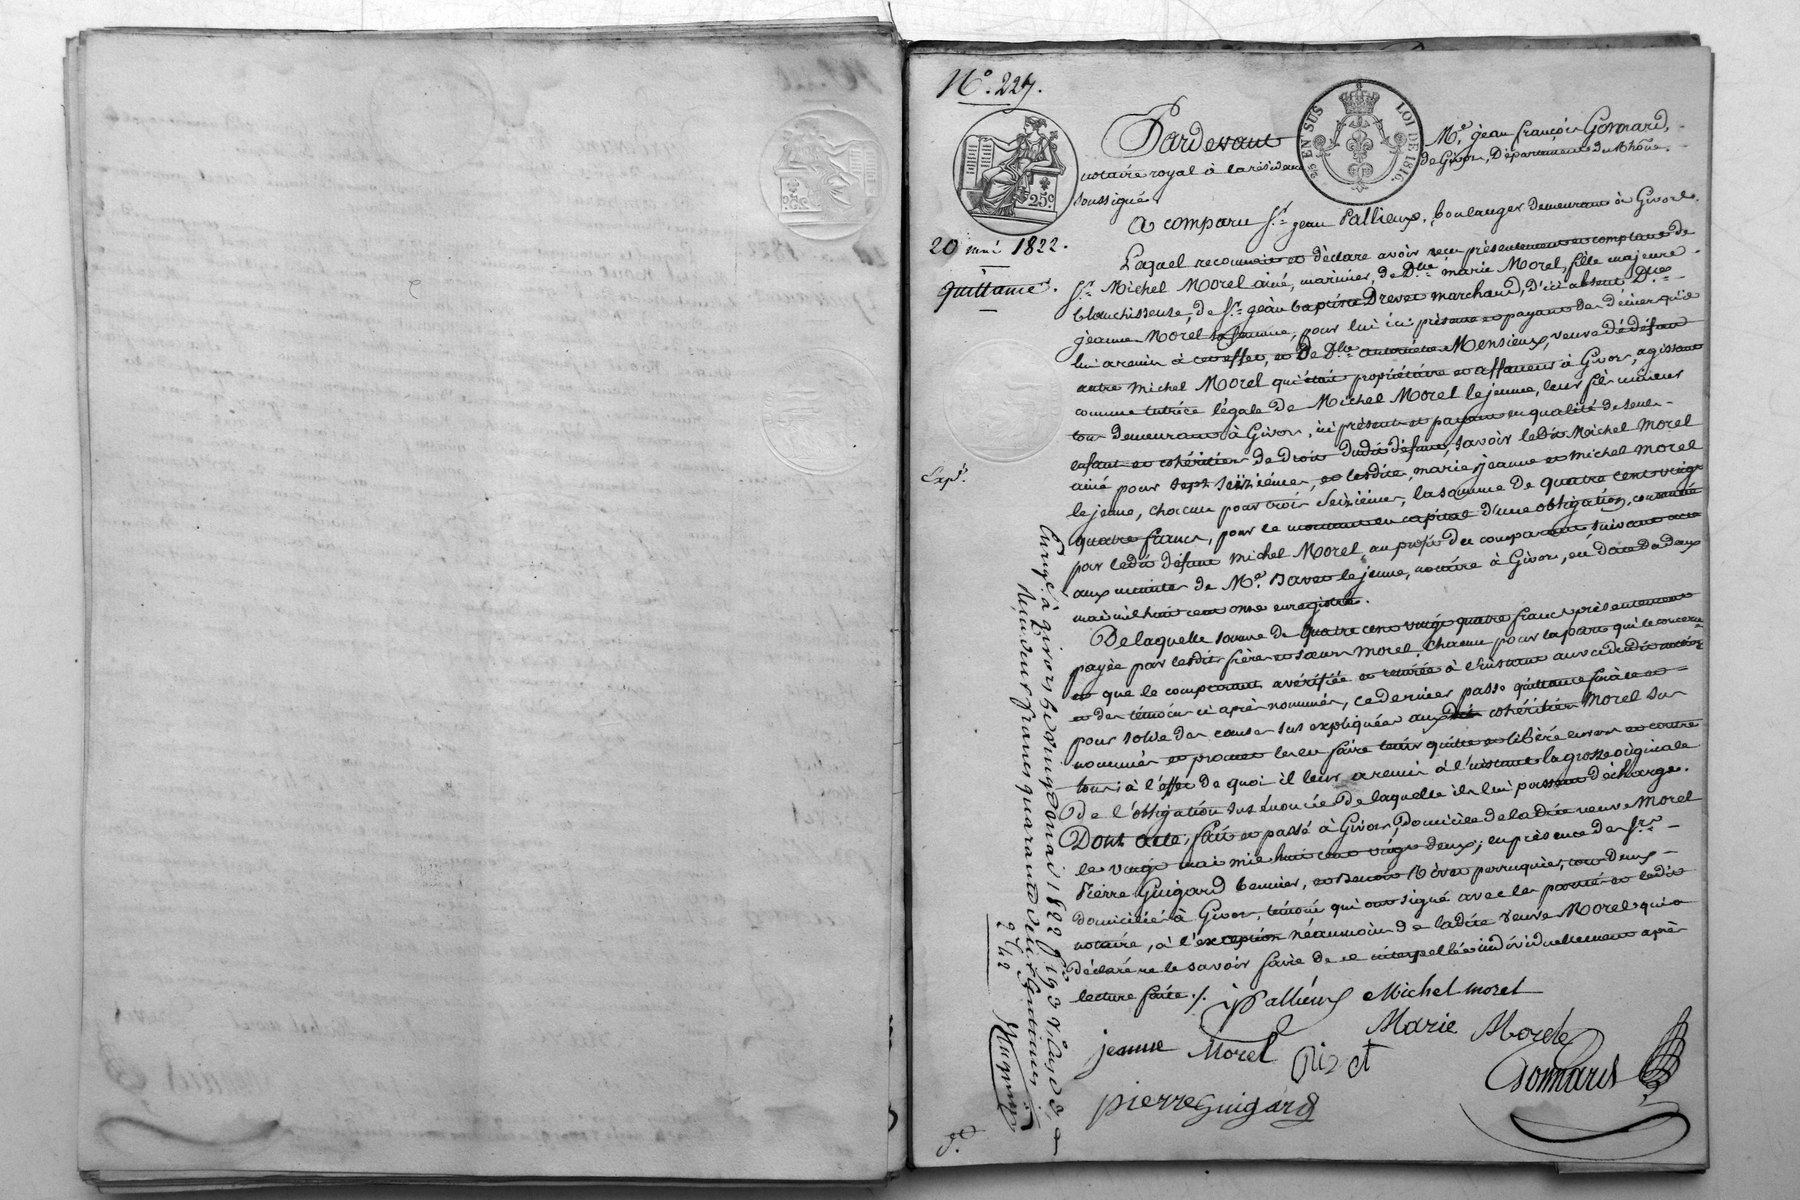 N.° 227.
25 EN SUS LOI DE 1816.
25.c
20 mai 1822.
quittance.
Exp.é
Pardevant M.e jean françois Gonnard,
notaire royal à la résidence de Givors, Département du Rhône,
soussigné
A comparu S.r jean Pallieux, boulanger demeurant à Givors.
Lequel reconnait et déclare avoir reçu présentement et comptant de
S.r Michel Morel ainé, marinier, de D.lle marie Morel, fille majeure
blanchisseuse, de S.r jean baptiste Drevet marchand, d'ici absent D.me
jeanne Morel sa femme, pour lui ici présente et payant des deniers qu'il
lui a remis à cet effet, et De D.lle antoinette Mensieux, veuve dédéfunt
autre Michel Morel qui était propriétaire et affaneur à Givors, agissant
comme tutrice légale de Michel Morel le jeune, leur fils mineur
tous demeurant à Givors, ici présents et payant en qualité de seuls
enfants et cohéritiers de droit dudit défunt, savoir ledit Michel Morel
ainé pour sept seizièmes, et lesdits, marie, jeanne et Michel Morel
le jeune, chacun pour trois seizièmes, la somme de quatre cent vingt
quatre francs, pour le montant en capital d'une obligation, consentie
par ledit défunt Michel Morel au profit du comparant suivant acte
aux minutes de M.e Davet le jeune, notaire à Givors, en date du deux
mai mil huit cent onze enregistré.
De laquelle somme de quatre cent vingt quatre francs présentement
payée par lesdits frère et sœurs Morel, chacun pour la part qui le concerne
et que le comparant a vérifiée et retirée à l'instant au vu dudit notaire
et des témoins ci après nommés, ce dernier passe quittance finale et
pour solde des causes sus expliquées aux dits cohéritiers Morel sus
nommés et promet les en faire tenir quittes et libérés envers et contre
tous; à l'effet de quoi il leur a remis à l'instant la grosse originale
De l'obligation sus énoncée de laquelle ils lui passent décharge.
Dont acte, fait et passé à Givors, Domicile de ladite veuve Morel
le vingt mai mil huit cent vingt deux; en présence des S.rs
Pierre Guigard bennier, et Benoit Rivet perruquier, tous deux
domiciliés à Givors, témoins qui ont signé avec les parties et ledit
notaire, à l'exception néanmoins de ladite veuve Morel qui a
déclaré ne le savoir faire de ce interpellée individuellement après
lecture faite ./.
jPallieux Michel morel
jeanne Morel Marie Morele
Rivet
Gonnard
pierre Guigard
Enreg.é à givors le vingt deux mai 1822 f.o 193
Reçu deux francs quarante deux Centimes
2 f 42